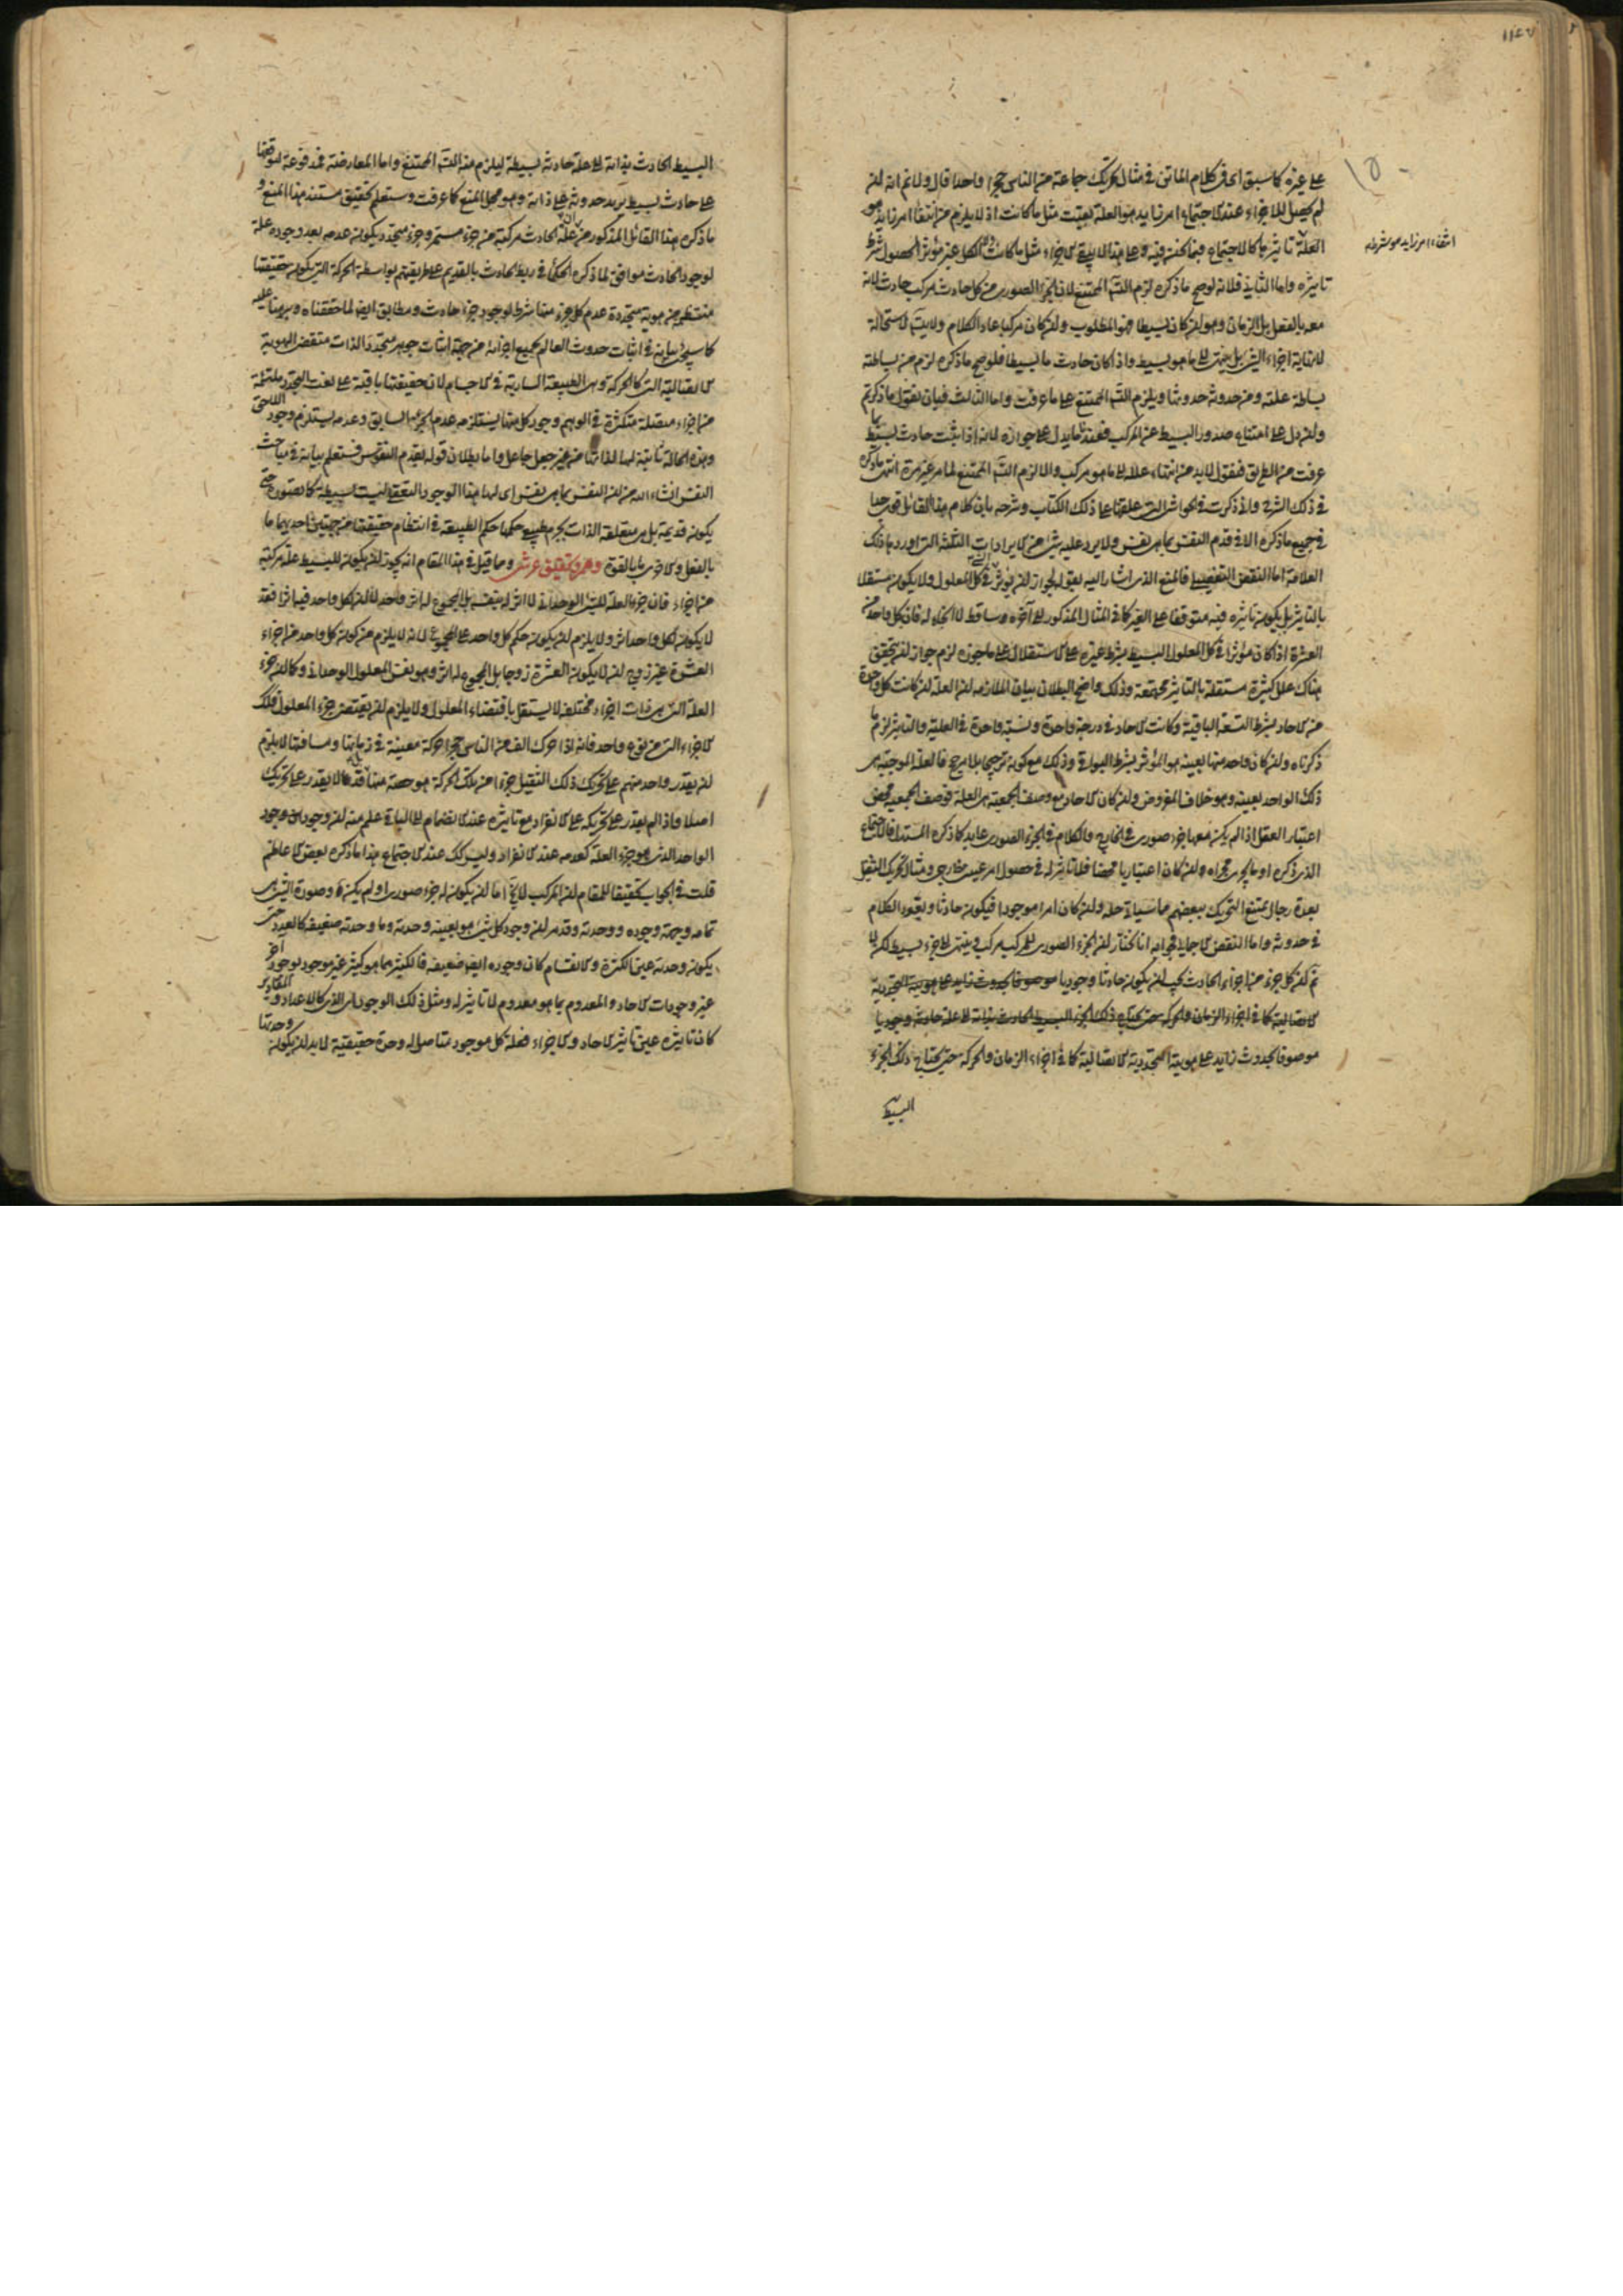 على غيره كما سبق في كلام الماتن في مثال تحريك جماعة من الناس حجرا واحدا قال ولا ثم انه لو
لم يحصل للاجزاء عند الاجتماع امر زايد هو العلة بقيت مثل ما كانت اذ لا يلزم من انتفاء امر زايد هو
العلة تاثيرها كالاجتماع فيما نحن فيه وعلى هذا لا يبقى الاجزاء مثل ما كانت الكل غير مؤثر لحصول شرط
انتفاء امر زايد هو شرط
تاثيره واما الثاني فلانه لو صح ما ذكره لزم التس الممتنع لان الجزء الصوري من كل حادث مركب حادث لانه
معه بالفعل بل الزمان وهو ان كان بسيطا فهو المطلوب وان كان مركبا عاد الكلام ولا يتس لاستحالة
لانهاية اجزاء الشيء بل ينتهي الى ما هو بسيط واذا كان حادث ما بسيطا فلو صح ما ذكره لزم من بساطته
بساطة علته ومن حدوثه حدوثها ويلزم التس الممتنع على ما عرفت واما الثالث فبان نقول ما ذكرتم
وان دل على امتناع صدور البسيط عن المركب فعندنا ما يدل على جوازه لانه اذا ثبت حادث بسيط بما
عرفت من الطريق فنقول لا بد من انتهاء علله الى ما هو مركب والا لزم التس الممتنع لما مر غير مرة انتهى ما ذكره
في ذلك الشرح وانا ذكرت في الحواشي التي علقتها على ذلك الكتاب وشرحه بان كلام هذا القائل قوي جيد
في جميع ما ذكره الا في قدم النفس بما هي نفس ولا يرد عليه شيء من الايرادات الثلثة التي اوردها ذلك
العلامة اما النقض التفصيلي فالمنع الذي اشار اليه بقوله لجواز ان يؤثر في كل المعلول ولا يكون مستقلا
بالتاثير بل يكون تاثيره فيه متوقفا على الغير كما في المثال المذكور الى آخره وساقط لا اتجاه له فان كل واحد من
العشرة اذا كان مؤثرا في كل المعلول البسيط بشرط غيره على الاستقلال على ما جوزه لزم جواز ان يتحقق
هناك علل كثيرة مستقلة بالتاثير مجتمعة وذلك واضح البطلان بيان الملازمة ان العلة ان كانت كل واحدة
من الاحاد بشرط التسعة الباقية وكانت الاحاد في درجة واحدة ونسبة واحدة في العلية والتاثير لزم ما
ذكرناه وان كان واحد منها بعينه هو المؤثر بشرط البواقي وذلك مع كونه ترجيحا بلا مرجح فالعلة الموجبة هي
ذلك الواحد بعينه وهو خلاف المفروض وان كان الاحاد مع وصف الجمعية هي العلة فوصف الجمعية محض
اعتبار العقل اذا لم يكن معها جزء صوري في الخارج والكلام في الجزء الصوري عايد كما ذكره المستدل فالاجتماع
الذي ذكره او ما يجري مجراه وان كان اعتباريا محضا فلا تاثير له في حصول امر عيني خارجي ومثال تحريك الثقيل
بعدة رجال يمتنع التحريك ببعضهم ما سياتي حله وان كان امرا موجودا فيكون حادثا ويعود الكلام
في حدوثه واما النقض الاجمالي فجوابه انا نختار ان الجزء الصوري للمركب مركب وينتهي الى جزء بسيط لكن لا
ثم ان كل جزء من اجزاء الحادث يجب ان يكون حادثا وجوديا موصوفا بحدوث زايد على هويته التجددية
الاتصالية كما في اجزاء الزمان والحركة حتى يحتاج ذلك الجزء البسيط الحادث بذاته الى علة حادثة وجوديا
موصوفا بحدوث زايد على هويته التجددية الاتصالية كما في اجزاء الزمان والحركة حتى يحتاج ذلك الجزء
البسيط
البسيط الحادث بذاته الى علة حادثة بسيطة ليلزم منه التس الممتنع واما المعارضة فمدفوعة لتوقفها
على حادث بسيط يزيد حدوثه على ذاته وهو محل المنع كما عرفت وستعلم تحقيق مستند هذا المنع و
ما ذكره هذا القائل المذكور من ان علة الحادث مركبة من جزء مستمر وجزء متجدد يكون عدمه بعد وجوده علة
لوجود الحادث موافق لما ذكره الحكماء في ربط الحادث بالقديم على طريقتهم بواسطة الحركة التي يكون حقيقتها
منتظمة من هوية متجددة عدم كل جزء منها شرط لوجود جزء حادث ومطابق ايضا لما حققناه وبرهنا عليه
كما سيجيء بيانه في اثبات حدوث العالم بجميع اجزائه من جهة اثبات جوهر متجدد الذات متقض الهوية
الاتصالية التي كالحركة وهي الطبيعة السارية في الاجسام لان حقيقتها باقية على نعت التجدد ملتئمة
من اجزاء متصلة متكثرة في الوهم وجود كل منها يستلزم عدم الجزء السابق وعدمه يستلزم وجود اللاحق
وهذه الحالة ثابتة لها لذاتها من غير جعل جاعل واما بطلان قوله بقدم النفوس فستعلم بيانه في مباحث
النفس انشاء الله من ان النفس بما هي نفس اى لها هذا الوجود التعلقي ليست بسيطة كما تصوره حتى
يكون قديمة بل هي متعلقة الذات بجرم طبيعي حكمها حكم الطبيعة في انتظام حقيقتها من جهتين احديهما ما
بالفعل والاخرى ما بالقوة وهم وتحقيق عرشي ومما قيل في هذا المقام انه يجوز ان يكون للبسيط علة مركبة
من اجزاء فان جزء العلة للشيء الوحداني لا اثر له بنفسه بل المجموع له اثر واحد لا ان لكل واحد فيه اثرا فقد
لا يكون لكل واحد اثر ولا يلزم ان يكون حكم كل واحد على المجموع لانه لا يلزم من كون كل واحد من اجزاء
العشرة غير زوج ان لا يكون العشرة زوجا بل المجموع له اثر وهو نفس المعلول الوحداني وكما ان جزء
العلة التي هي ذات اجزاء مختلفة لا يستقل باقتضاء المعلول ولا يلزم ان يقتضي جزء المعلول فكذلك
الاجزاء التي من نوع واحد فانه اذا حرك الف من الناس حجرا حركة معينة في زمانها ومسافتها لا يلزم
ان يقدر واحد منهم على تحريك ذلك الثقيل جزءا من تلك الحركة هو حصة منها بل قد لا يقدر على تحريك
اصلا واذا لم يقدر على تحريكه على الانفراد مع تاثيره عند الانضمام الى الباقي علم منه ان وجود
الواحد الذي هو جزء العلة كعدمه عند الانفراد وليس كذلك عند الاجتماع هذا ما ذكره بعض الاعاظم
قلت في الجواب تحقيقا للمقام ان المركب لا يخ اما ان يكون له جزء صوري او لم يكن له وصورة الشيء هي
تمامه وجهة وجوده ووحدته وقد مر ان وجود كل شيء هو بعينه وحدته وما وحدته ضعيفة كالعدد حتى
يكون وحدته عين الكثرة والانقسام كان وجوده ايضا ضعيفا فالكثير بما هو كثير غير موجود بوجود آخر
غير وجودات الاحاد والمعدوم بما هو معدوم لا تاثير له ومثل ذلك الوجود اى الذي كالاعداد والمقادير
كان تاثيره عين تاثير الاحاد والاجزاء فعلة كل موجود متاصل له وحدة حقيقية لا بد ان يكون وحدتها